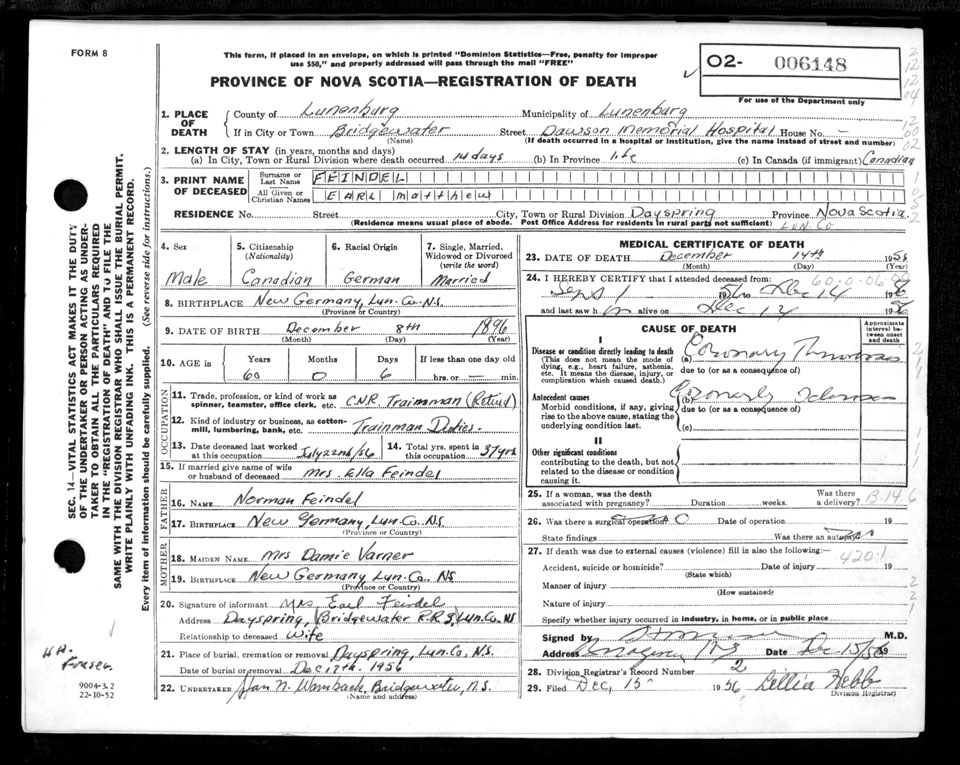 FORM 8
This form, if placed in an envelope, on which is printed "Dominion Statistics—Free, penalty for improper
use $50," and properly addressed will pass through the mail "FREE"
PROVINCE OF NOVA SCOTIA—REGISTRATION OF DEATH
O2- 006148
For use of the Department only
SEC. 14—VITAL STATISTICS ACT MAKES IT THE DUTY
OF THE UNDERTAKER OR PERSON ACTING AS UNDER-
TAKER TO OBTAIN ALL THE PARTICULARS REQUIRED
IN THE "REGISTRATION OF DEATH" AND TO FILE THE
SAME WITH THE DIVISION REGISTRAR WHO SHALL ISSUE THE BURIAL PERMIT.
WRITE PLAINLY WITH UNFADING INK. THIS IS A PERMANENT RECORD.
Every item of information should be carefully supplied. (See reverse side for instructions.)
1. PLACE OF DEATH County of Lunenburg Municipality of Lunenburg
If in City or Town Bridgewater Street Dawson Memorial Hospital House No. —
(Name) (If death occurred in a hospital or institution, give the name instead of street and number)
2. LENGTH OF STAY (in years, months and days)
(a) In City, Town or Rural Division where death occurred 14 days (b) In Province life (c) In Canada (if immigrant) Canadian
3. PRINT NAME OF DECEASED Surname or Last Name FEINDEL
All Given or Christian Names EARL matthew
RESIDENCE No. Street City, Town or Rural Division Dayspring Province Nova Scotia
(Residence means usual place of abode. Post Office Address for residents in rural parts not sufficient) Lun. Co
4. Sex Male
5. Citizenship (Nationality) Canadian
6. Racial Origin German
7. Single, Married, Widowed or Divorced (write the word) Married
8. BIRTHPLACE New Germany, Lun. Co. N.S.
(Province or Country)
9. DATE OF BIRTH December 8th 1896
(Month) (Day) (Year)
10. AGE in Years Months Days If less than one day old
60 0 6 hrs. or — min.
OCCUPATION
11. Trade, profession, or kind of work as spinner, teamster, office clerk, etc. C.N.R. Trainman (Retired)
12. Kind of industry or business, as cotton-mill, lumbering, bank, etc. Trainman Duties.
13. Date deceased last worked at this occupation July 22nd/56 14. Total yrs. spent in this occupation 37 yrs
15. If married give name of wife or husband of deceased Mrs. Ella Feindel
FATHER
16. NAME Norman Feindel
17. BIRTHPLACE New Germany, Lun. Co. N.S.
(Province or Country)
MOTHER
18. MAIDEN NAME Mrs Damie Varner
19. BIRTHPLACE New Germany Lun. Co. N.S
(Province or Country)
20. Signature of informant Mrs. Earl Feindel
Address Dayspring, Bridgewater R.R. 3, Lun. Co. N.S
Relationship to deceased Wife
21. Place of burial, cremation or removal Dayspring, Lun. Co. N.S.
Date of burial or removal Dec 17th. 1956
22. UNDERTAKER Wambach, Bridgewater, N.S.
(Name and address)
9004-3.2
22-10-52
MEDICAL CERTIFICATE OF DEATH
23. DATE OF DEATH December 14th 1956
(Month) (Day) (Year)
24. I HEREBY CERTIFY that I attended deceased from: 60-0-06
Sept 1 1956 to Dec 14 1956
and last saw him alive on Dec 14 1956
CAUSE OF DEATH
Approximate interval between onset and death
I
Disease or condition directly leading to death (a) Coronary Thrombosis
(This does not mean the mode of dying, e.g., heart failure, asthenia, etc. It means the disease, injury, or complication which caused death.) due to (or as a consequence of)
Antecedent causes (b) Coronary Sclerosis
Morbid conditions, if any, giving rise to the above cause, stating the underlying condition last. due to (or as a consequence of)
(c)
II
Other significant conditions
contributing to the death, but not related to the disease or condition causing it.
25. If a woman, was the death associated with pregnancy? Duration weeks. Was there a delivery? B-14.6
26. Was there a surgical operation? Date of operation 19
State findings Was there an autopsy?
27. If death was due to external causes (violence) fill in also the following:—
420.1
Accident, suicide or homicide? Date of injury 19
(State which)
Manner of injury
(How sustained)
Nature of injury
Specify whether injury occurred in industry, in home, or in public place
Signed by M.D.
Address Date Dec 15/56 19
28. Division Registrar's Record Number 2
29. Filed Dec. 15 1956 Lillia Hebb
Division Registrar